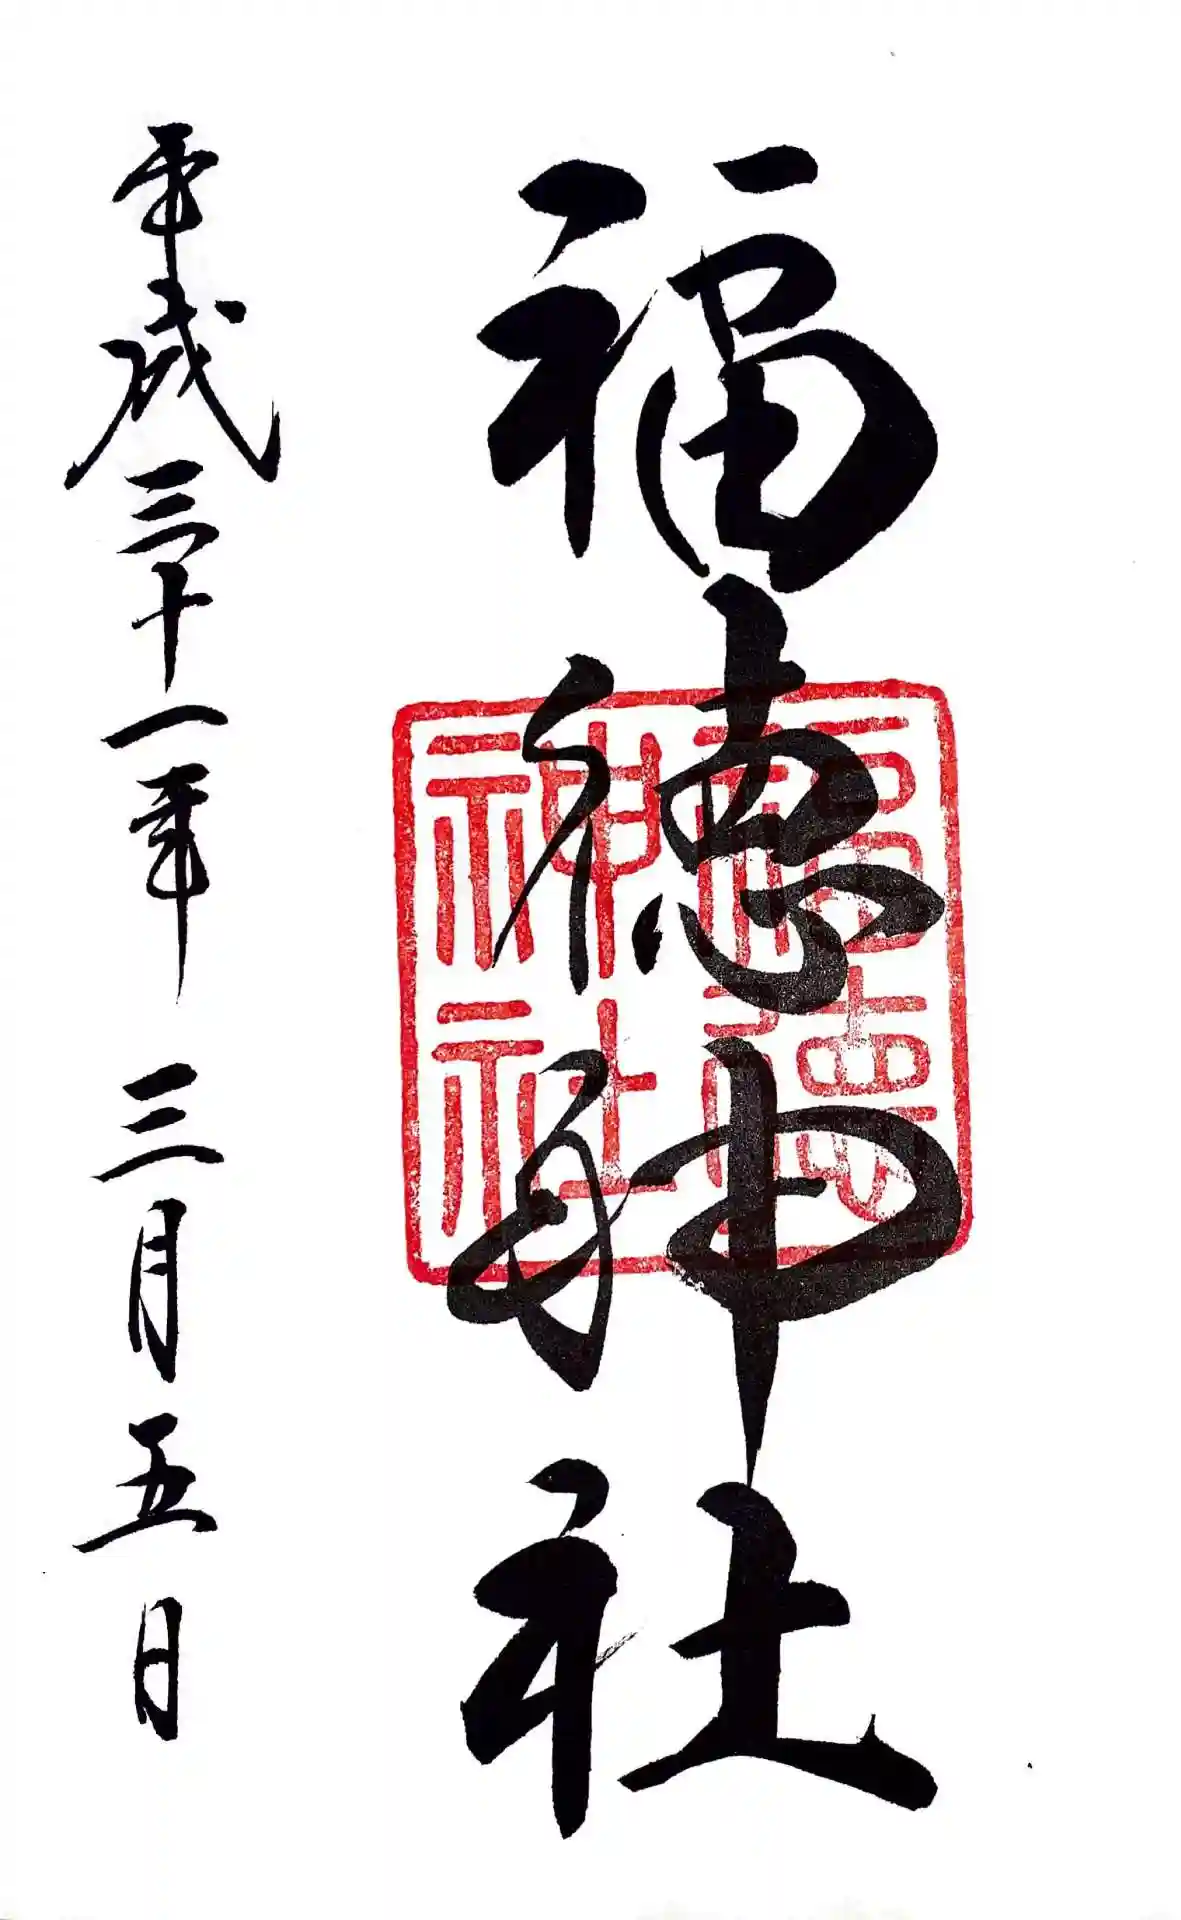 福徳神社
福徳
神社
平成三十一年 三月五日